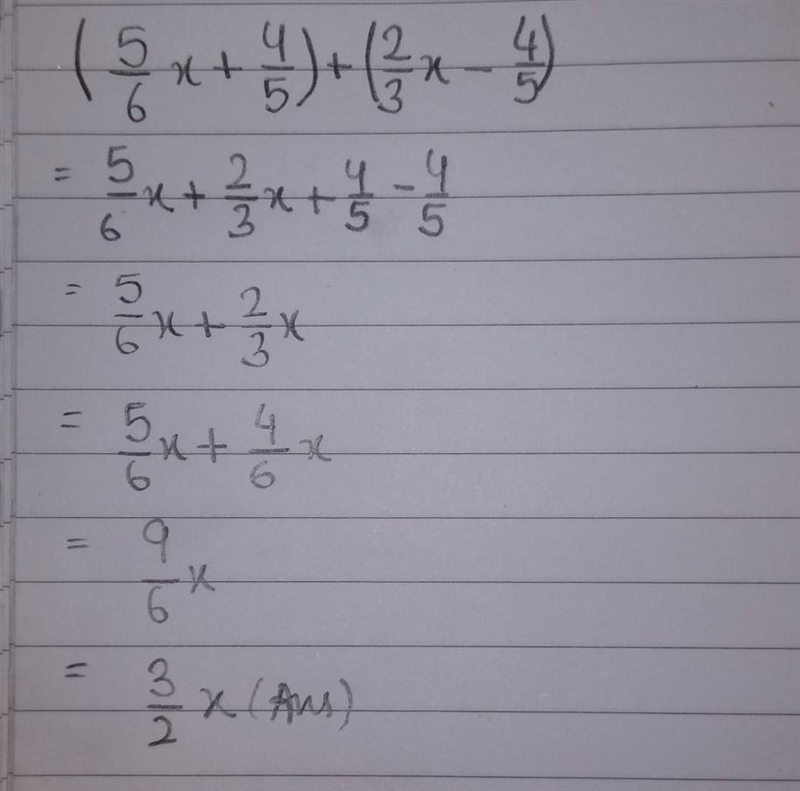 (5/6 x + 4/5) + (2/3 x - 4/5)
= 5/6 x + 2/3 x + 4/5 - 4/5
= 5/6 x + 2/3 x
= 5/6 x + 4/6 x
= 9/6 x
= 3/2 x (Ans)